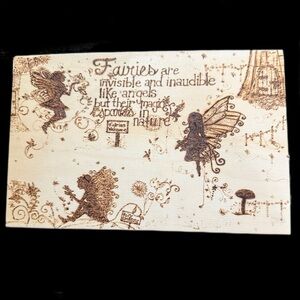 Fairies are
invisible and inaudible
like angels
but their magic
sparkles in
nature
Fairies